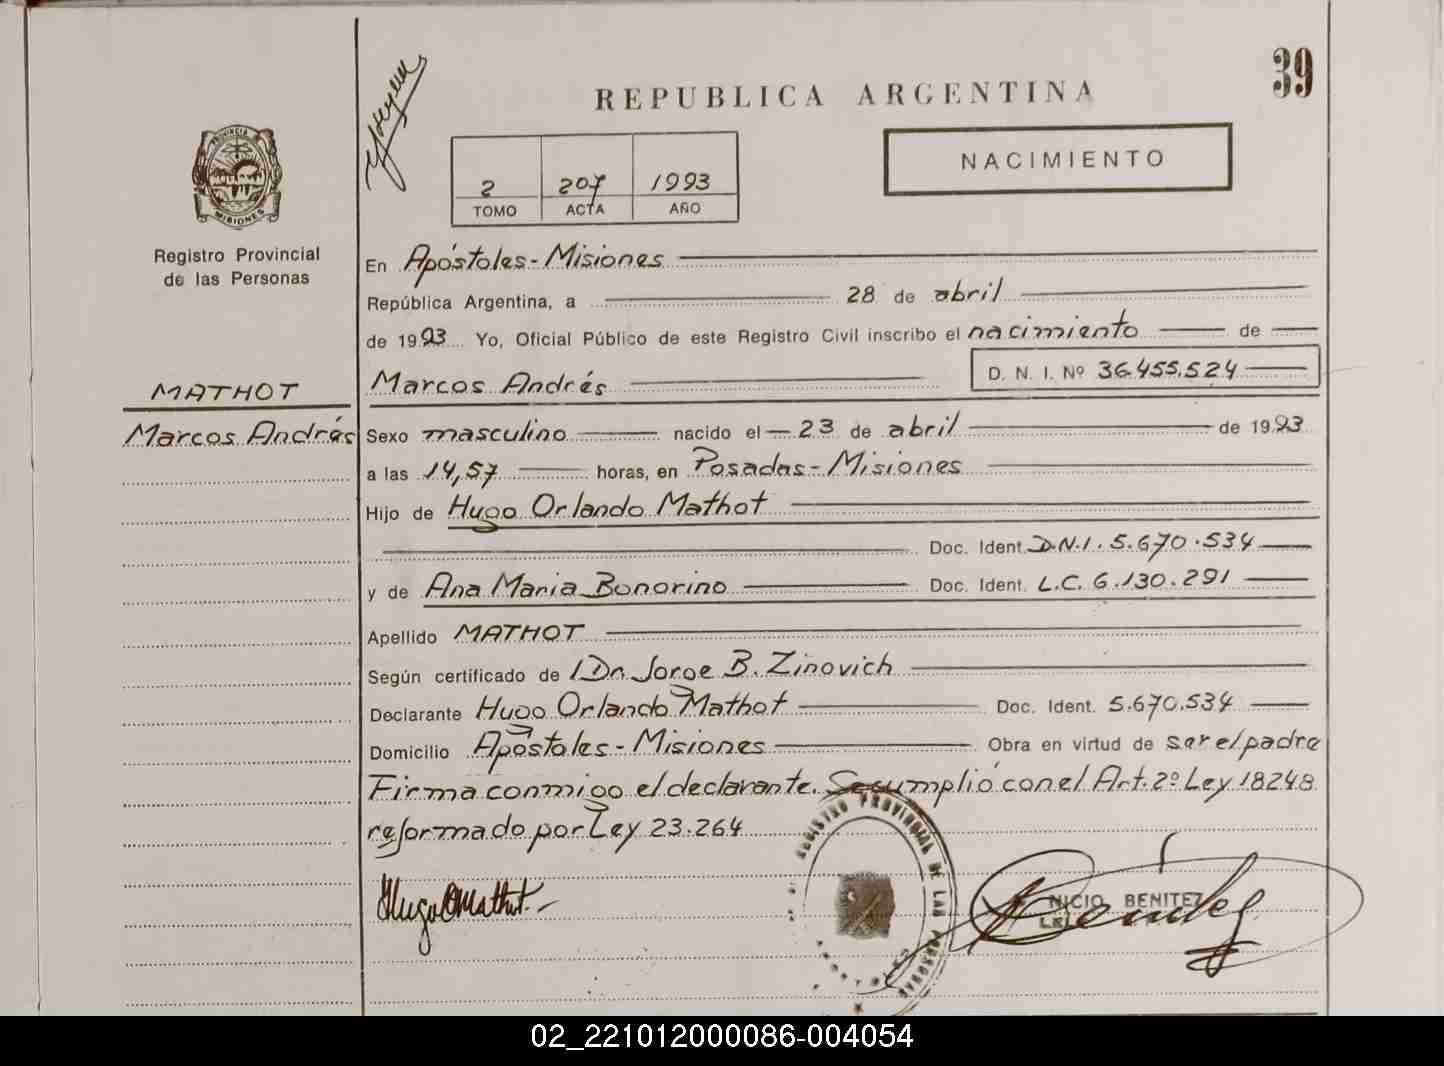 39
REPUBLICA ARGENTINA
NACIMIENTO
2 207 1993
TOMO ACTA AÑO
PROVINCIA DE
MISIONES
Registro Provincial
de las Personas
MATHOT
Marcos Andrés
En Apóstoles-Misiones
República Argentina, a 28 de abril
de 1993 Yo, Oficial Público de este Registro Civil inscribo el nacimiento de
Marcos Andrés D. N. I. Nº 36.455.524
Sexo masculino nacido el 23 de abril de 1993
a las 14,57 horas, en Posadas-Misiones
Hijo de Hugo Orlando Mathot
Doc. Ident. D.N.I. 5.670.534
y de Ana Maria Bonorino Doc. Ident. L.C. 6.130.291
Apellido MATHOT
Según certificado de Dr. Jorge B. Zinovich
Declarante Hugo Orlando Mathot Doc. Ident. 5.670.534
Domicilio Apóstoles-Misiones Obra en virtud de ser el padre
Firma conmigo el declarante. Se cumplió con el Art. 2º Ley 18248
reformado por Ley 23.264
REGISTRO PROVINCIAL DE LAS PERSONAS
Hugo O Mathot
NICIO BENITEZ
02_221012000086-004054